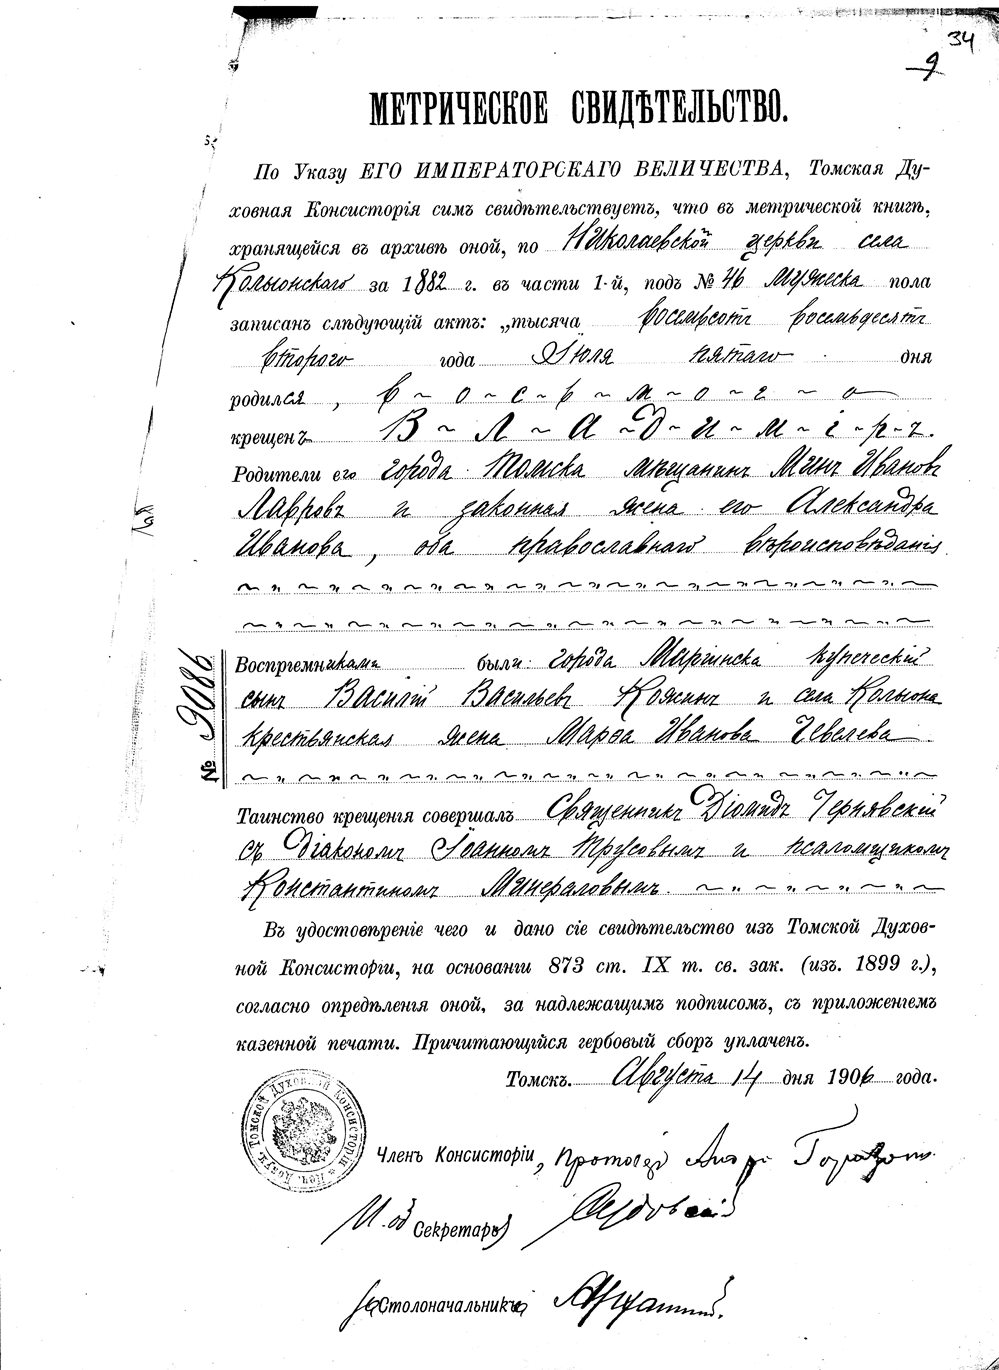 34
9
МЕТРИЧЕСКОЕ СВИДѢТЕЛЬСТВО.
По Указу ЕГО ИМПЕРАТОРСКАГО ВЕЛИЧЕСТВА, Томская Ду-
ховная Консисторія симъ свидѣтельствуетъ, что въ метрической книгѣ,
хранящейся въ архивѣ оной, по Николаевской церкви села
Колыонскаго за 1882 г. въ части 1-й, подъ № 46 мужеска пола
записанъ слѣдующій актъ: „тысяча восемьсотъ восемьдесятъ
второго года Іюля пятаго дня
родился, в-о-с-ь-м-о-г-о
крещенъ В-Л-А-Д-И-М-І-Р-Ъ.
Родители его города Томска мѣщанинъ Минъ Ивановъ
Лавровъ и законная жена его Александра
Иванова, оба православнаго вѣроисповѣданія
Воспріемниками были: города Маріинска купеческій
сынъ Василій Васильевъ Кожинъ и села Колыона
крестьянская жена Марѳа Иванова Чевелева
№ 9086
Таинство крещенія совершалъ Священникъ Діомидъ Чернявскій
съ діакономъ Іоанномъ Трусовымъ и псаломщикомъ
Константиномъ Минераловымъ.
Въ удостовѣреніе чего и дано сіе свидѣтельство изъ Томской Духов-
ной Консисторіи, на основаніи 873 ст. IX т. св. зак. (изъ 1899 г.),
согласно опредѣленія оной, за надлежащимъ подписомъ, съ приложеніемъ
казенной печати. Причитающійся гербовый сборъ уплаченъ.
Томскъ. Августа 14 дня 1906 года.
Томской Духовной Консисторіи
Членъ Консисторіи, Протоіер
И. об Секретаря
За Столоначальника